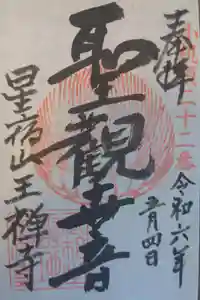 奉拝
二十二番
聖觀世音
令和六年
五月四日
星宿山王禅寺